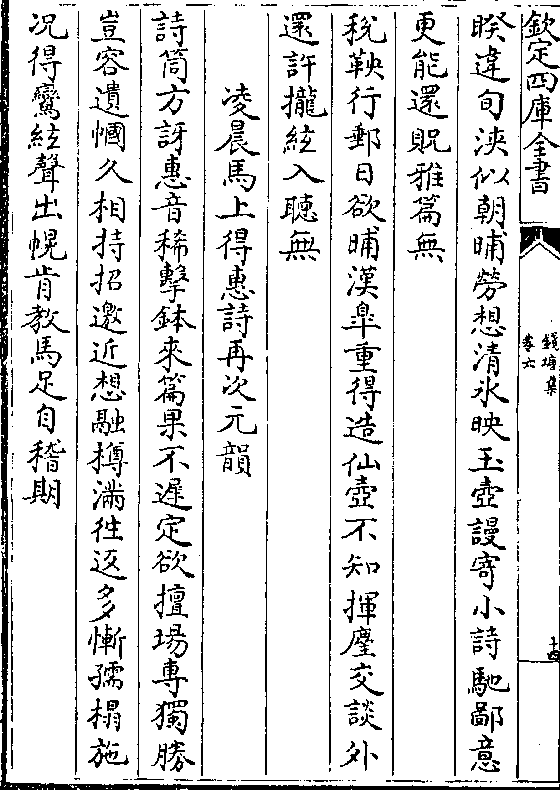 欽定四庫全書
錢塘集
卷六
十四
睽違旬浹似朝晡勞想清氷映玉壺謾寄小詩馳鄙意
更能還貺雅篇無
稅鞅行郵日欲晡漢臯重得造仙壺不知揮麈交談外
還許攏絃入聽無
凌晨馬上得惠詩再次元韻
詩筒方訝惠音稀擊鉢來篇果不遲定欲擅場專獨勝
豈容遺幗久相持招邀近想融樽滿徃返多慚孺榻施
况得鸞絃聲出幌肯教馬足自稽期